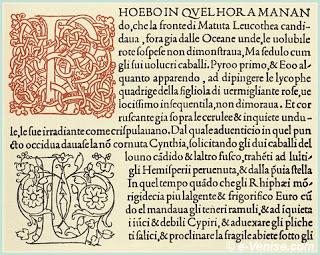 HOEBO IN QVEL HORA MANAN
do, che la fronte di Matuta Leucothea candi-
daua, fora gia dalle Oceane unde, le uolubile
rote sospese non dimonstraua, Ma sedulo cum
gli sui uolucri caballi. Pyroo primo, & Eoo al-
quanto apparendo, ad dipingere le lycophe
quadrige della figliola di uermigliante rose, ue
locissimo insequentila, non dimoraua. Et cor
ruscante gia sopra le cerulee & inquiete undu-
le, le sue irradiante come crispulauano. Dal quale aduenticio in quel pun
cto occidua dauase la nõ cornuta Cynthia, solicitando gli dui caballi del
louno cãdido & laltro fusco, trahẽti ad lulti-
gli Hemisperii peruenuta, & dalla puia stella
In quel tempo quãdo che gli Rhiphæi mõ
rigidecia piu lalgente & frigorifico Euro cũ
dõ el mandaua gli teneri ramuli, & ad iquieta
iiuici & debili Cypiri, & aduexare gli pliche
ti salici, & proclinare la fragile abiete sotto gli
© e-Venise.com